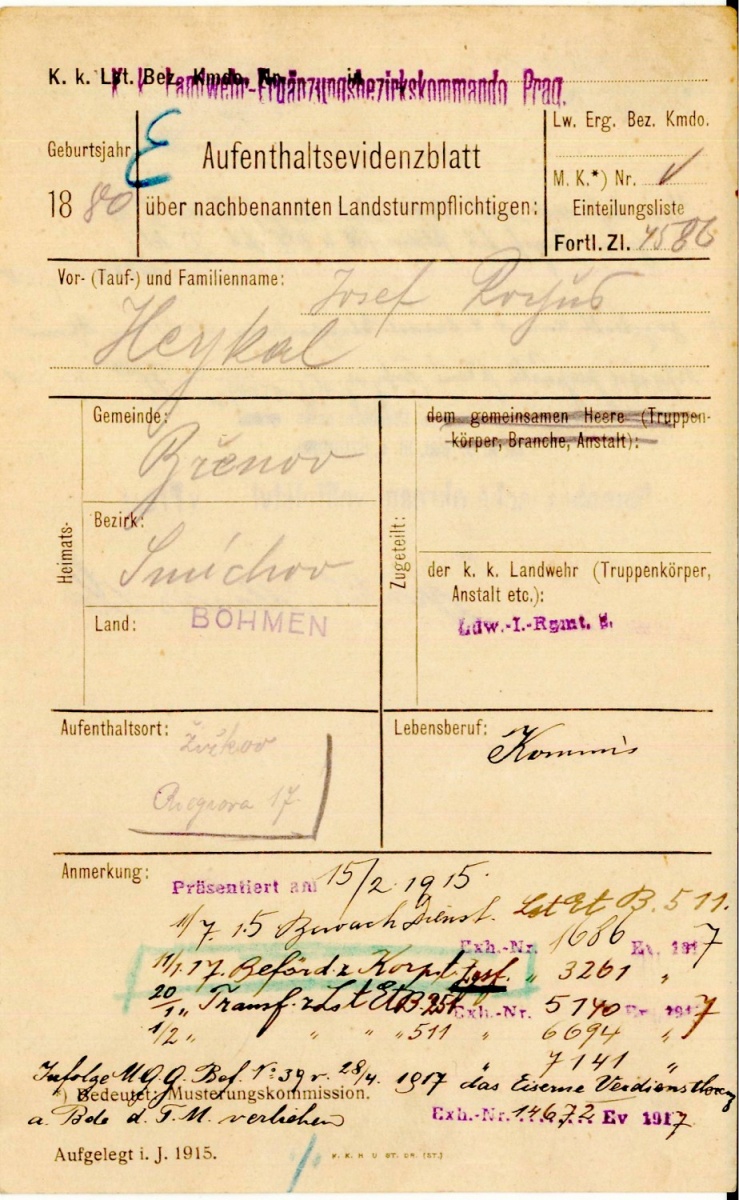 K. k. Lst. Bez. Kmdo. Nr. in
K. k. Landwehr-Ergänzungsbezirkskommando Prag.
Geburtsjahr
1880
E
Aufenthaltsevidenzblatt
über nachbenannten Landsturmpflichtigen:
Lw. Erg. Bez. Kmdo.
M. K.*) Nr. V
Einteilungsliste
Fortl. Zl. 4586
Vor- (Tauf-) und Familienname: Josef
Heykal
Heimats-
Gemeinde:
Břevnov
Bezirk:
Smíchov
Land: BÖHMEN
Zugeteilt:
dem gemeinsamen Heere (Truppen-
körper, Branche, Anstalt):
der k. k. Landwehr (Truppenkörper,
Anstalt etc.):
Ldw.-I.-Rgmt. 8.
Aufenthaltsort:
Žižkov
17
Lebensberuf:
Kommis
Anmerkung:
Präsentiert am 15/2 1915.
1/7. 15 Bewach Dienst. Lst Et B. 511.
Exh.-Nr. 1686 Ev. 1917
1/1.17. Beförd. z. Korp. Zgsf. " 3261 "
20/1 " Transf. z. Lst Et B 251 Exh.-Nr. 5140 Ev. 1917
1/2 " " " 511 " 6694 "
" 7141 "
Infolge M.G.G. Bef. No 39 v. 28/4. 1917 das Eiserne Verdienstkreuz
*) Bedeutet: Musterungskommission.
a. Bde d. T. M. verliehen
Exh.-Nr. 14672 Ev 1917.
Aufgelegt i. J. 1915.
F. K. H. U. ST. DR. (ST.)